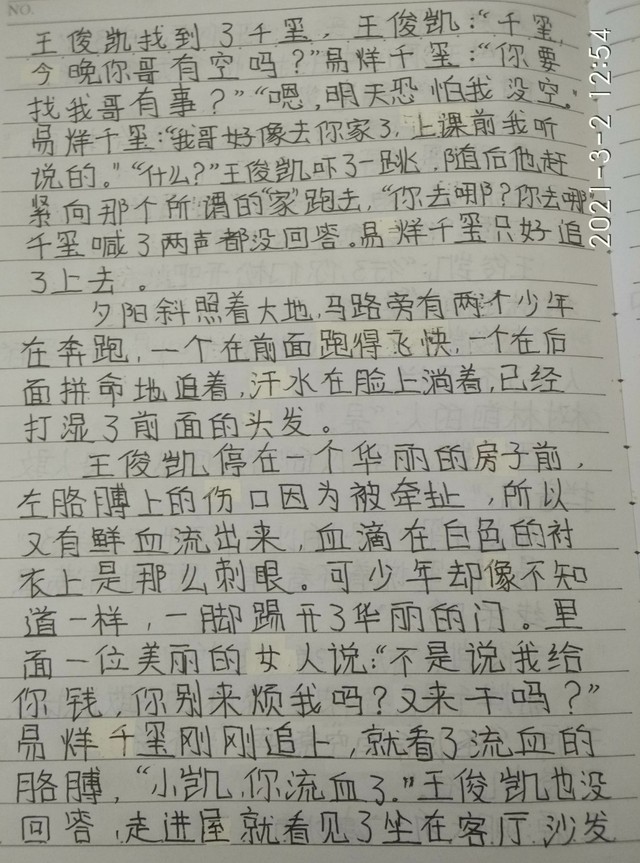 NO.
王俊凯找到了千玺，王俊凯："千玺，
今晚你哥有空吗？"易烊千玺："你要
找我哥有事？""嗯，明天恐怕我没空。"
易烊千玺："我哥好像去你家了，上课前我听
说的。""什么？"王俊凯吓了一跳，随后他赶
紧向那个所谓的"家"跑去，"你去哪？你去哪
千玺喊了两声都没回答。易烊千玺只好追
了上去。
夕阳斜照着大地，马路旁有两个少年
在奔跑，一个在前面跑得飞快，一个在后
面拼命地追着，汗水在脸上淌着，已经
打湿了前面的头发。
王俊凯停在一个华丽的房子前，
左胳膊上的伤口因为被牵扯，所以
又有鲜血流出来，血滴在白色的衬
衣上是那么刺眼。可少年却像不知
道一样，一脚踢开了华丽的门。里
面一位美丽的女人说："不是说我给
你钱，你别来烦我吗？又来干吗？"
易烊千玺刚刚追上，就看了流血的
胳膊，"小凯，你流血了。"王俊凯也没
回答，走进屋就看见了坐在客厅沙发
2021-3-2 12:54